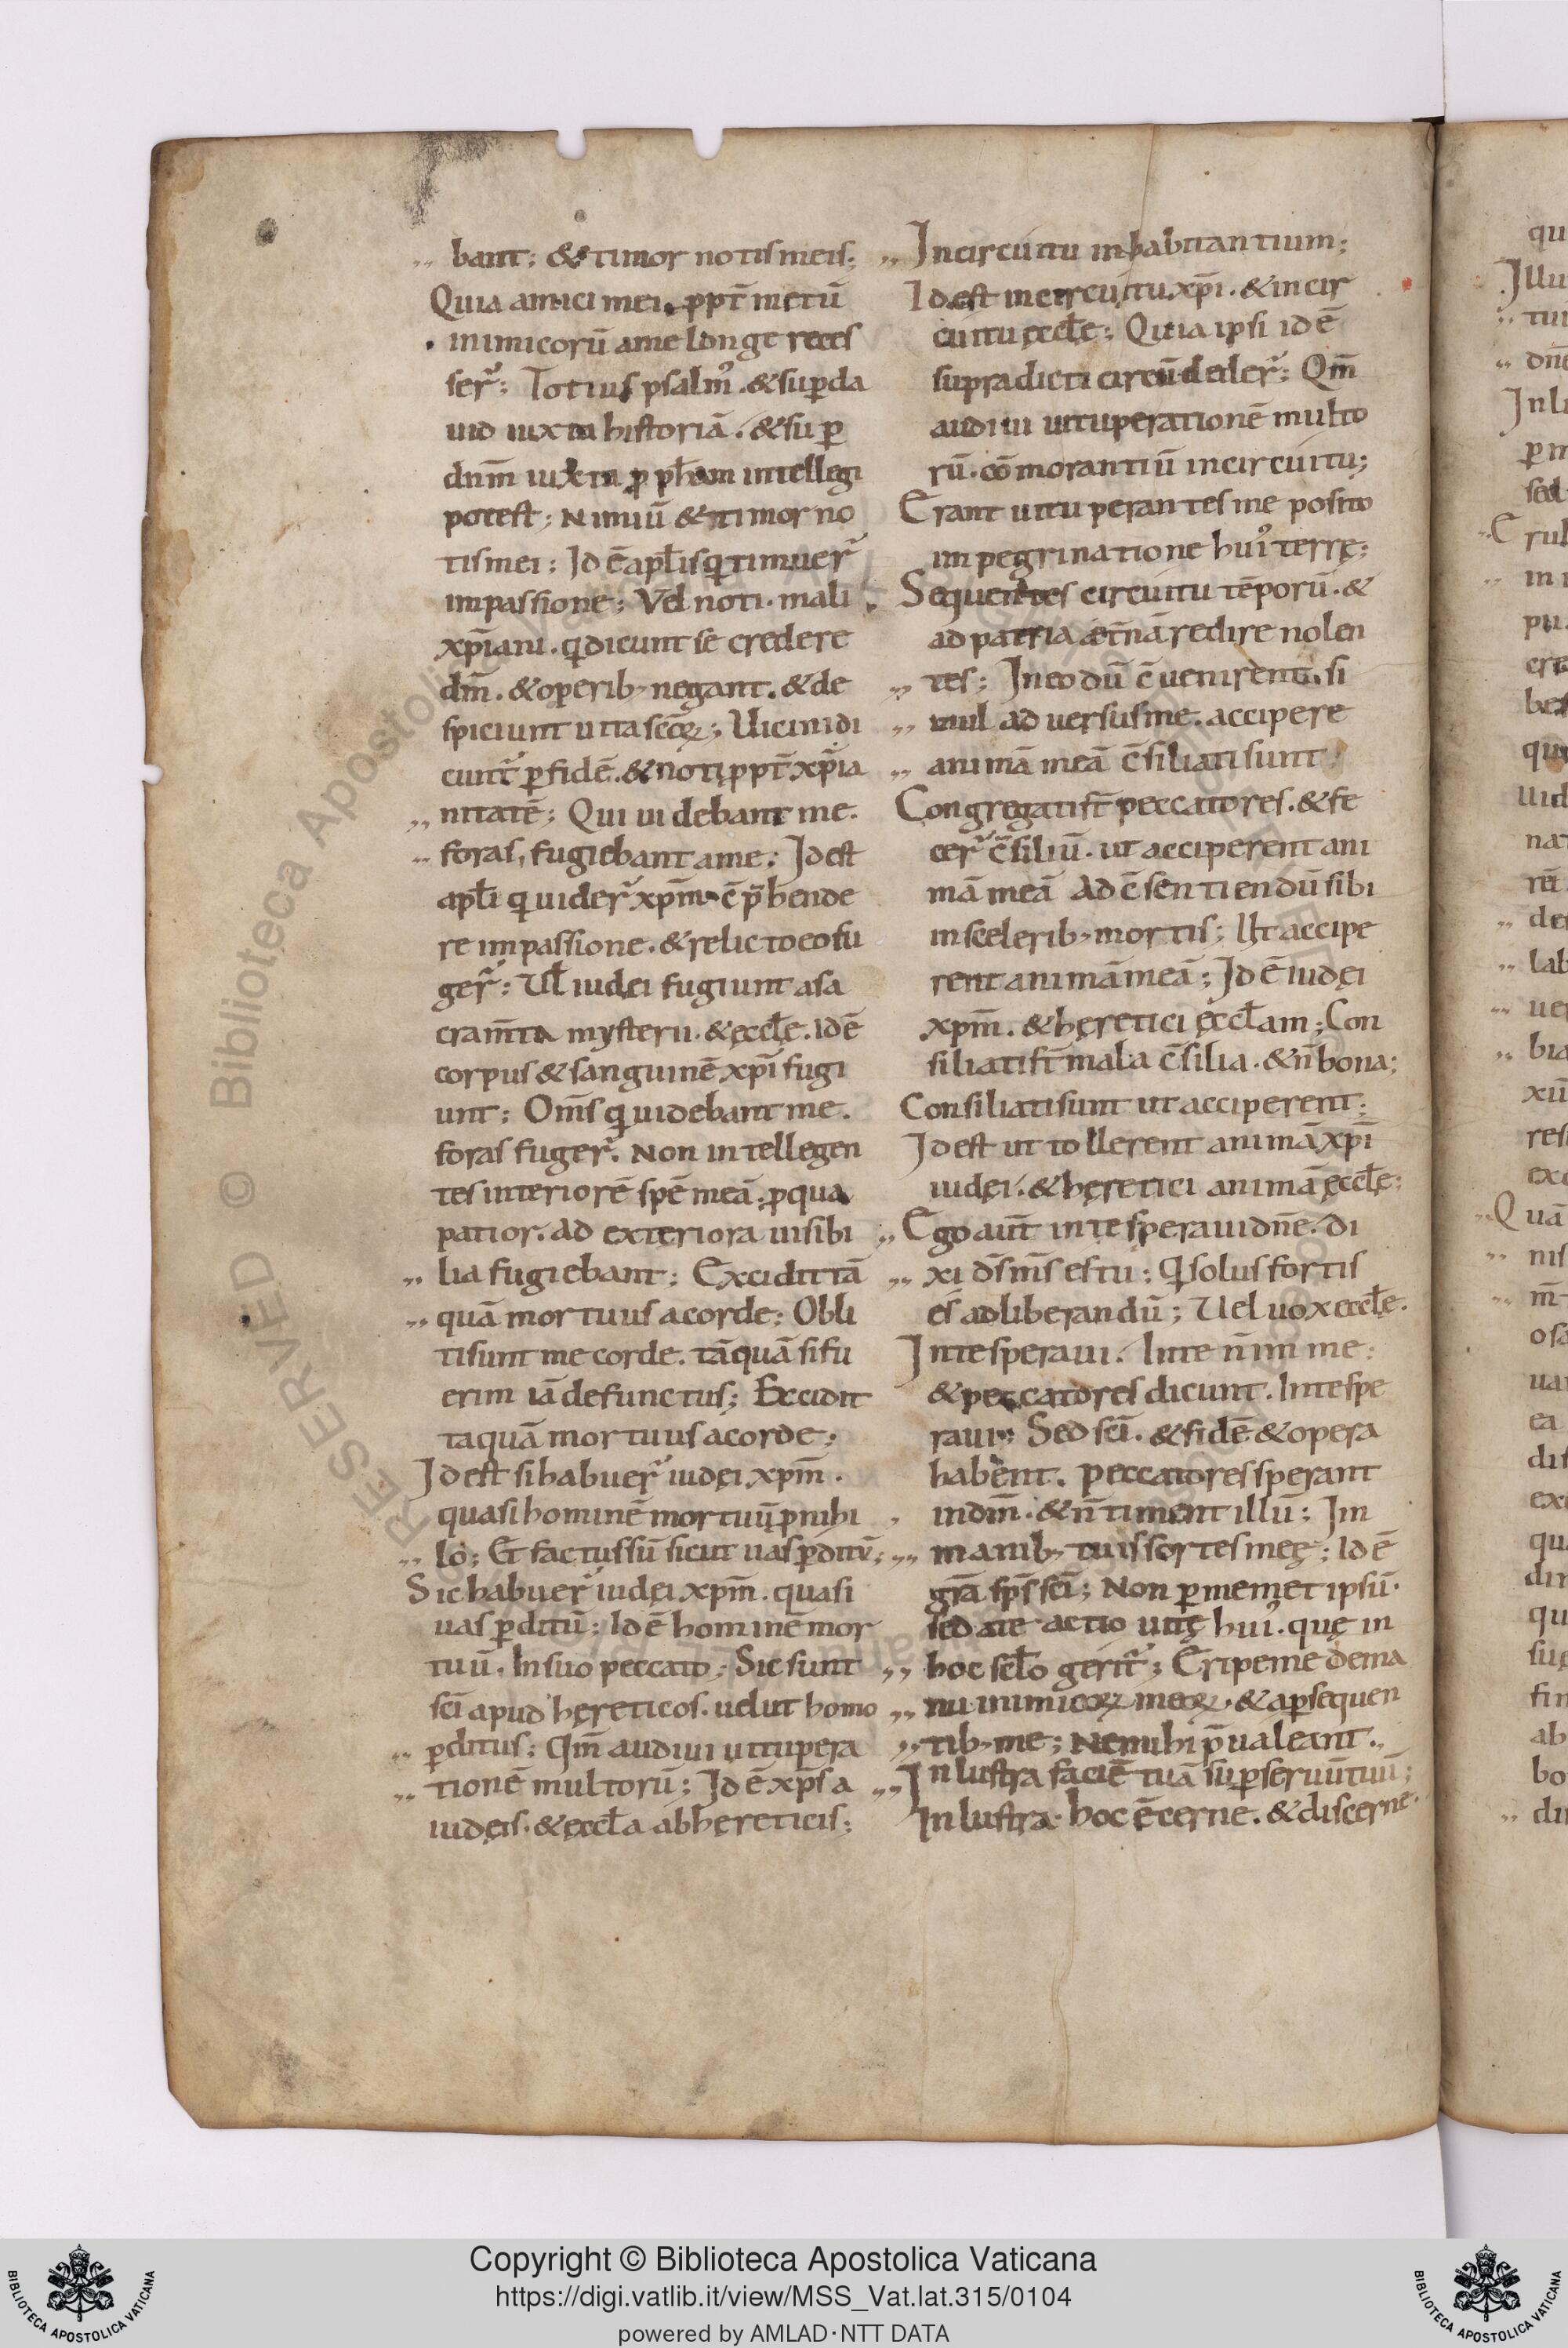 bant; & timor notis meis;
Quia amici mei. ppt̄ metū
inimicorū a me longe reces
ser̄; Totius psalm᾽. & sup da
uid iuxta historiā. & sup
dnm̄ iuxta pphām intellegi
potest; Nimiū & timor no
tis mei; Id ē apl̄is q timuer̄
in passione; Vel noti. mali
xp̄iani. q dicunt se credere
dm̄. & operib; negant. & de
spiciunt uita scōꝝ; Uicini di
cunt̄ p fidē. & noti ppt̄ xp̄ia
nitatē; Qui uidebant me.
foras, fugiebant a me; Id est
apl̄i q uider̄ xpm̄ c̄p̄hende
re in passione. & relicto eo fu
ger̄; Ul̄ iudęi fugiunt a sa
cram̄ta mysterii. & ęccl̄ę. id ē
corpus & sanguinē xp̄i fugi
unt; Om̄s q uidebant me.
foras fuger̄. Non intellegen
tes interiorē spē meā; p qua
patior. ad exteriora uisibi
lia fugiebant; Excidi tā
quā mortuus a corde; Obli
ti sunt me corde. tāquā si fu
erim iā defunctus; Excidit
taquā mortuus a corde;
Id est si habuer̄ iudęi xpm̄.
quasi hominē mortuū p nihi
lo; Et factus sū sicut uas pditū;
Sic habuer̄ iudęi xpm̄. quasi
uas pditū; Id ē hominē mor
tuū. In suo peccato; Sic sunt
sc̄i apud hęreticos. uelut homo
pditus; Qm̄ audiui uitupera
tionē multorū; Id ē xp̄s a
iudęis. & ęccl̄a ab hęreticis;
In circuitu inhabitantium;
Id est in circuitu xp̄i. & in cir
cuitu ęccl̄ę; Quia ipsi id ē
supradicti circūdeder̄; Qm̄
audiui uituperationē multo
rū. cōmorantiū in circuitu;
Erant uituperantes me posito
in pegrinatione hui᾽ terrę;
Sequentes circuitu tēporū. &
ad patria ęt̄nā redire nolen
tes; In eo dū c̄uenirent. si
mul aduersus me. accipere
animā meā c̄siliati sunt;
Congregati st̄ peccatores. & fe
cer̄ c̄siliū. ut acciperent ani
mā meā ad c̄sentiendū sibi
in scelerib; mortis; Ut accipe
rent animā meā; Id ē iudęi
xpm̄. & hęretici ęccl̄am; Con
siliati st̄ mala c̄silia. & n̄ bona;
Consiliati sunt ut acciperent;
Id est ut tollerent animā xp̄i
iudęi. & hęretici animā ęccl̄ę;
Ego aut̄ in te speraui dn̄e. di
xi ds̄ ms̄ es tu; Q solus fortis
es ad liberandū; Uel uox eccl̄ę.
In te speraui. In te n̄ in me;
& peccatores dicunt. In te spe
raui; Sed sc̄i. & fidē & opera
habent. peccatores sperant
in dm̄. & n̄ timent illū; In
manib; tuis sortes meę; Id ē
gr̄a sp̄s sc̄i; Non p memet ipsū.
sed a te actio uitę hui᾽. quę in
hoc scl̄o gerit̄; Eripe me de ma
nu inimicoꝝ meoꝝ. & a psequen
tib; me; Ne mihi p̄ualeant.
In lustra faciē tuā sup seruū tuū;
In lustra. hoc ē cerne. & discerne.
Copyright © Biblioteca Apostolica Vaticana
https://digi.vatlib.it/view/MSS_Vat.lat.315/0104
powered by AMLAD·NTT DATA